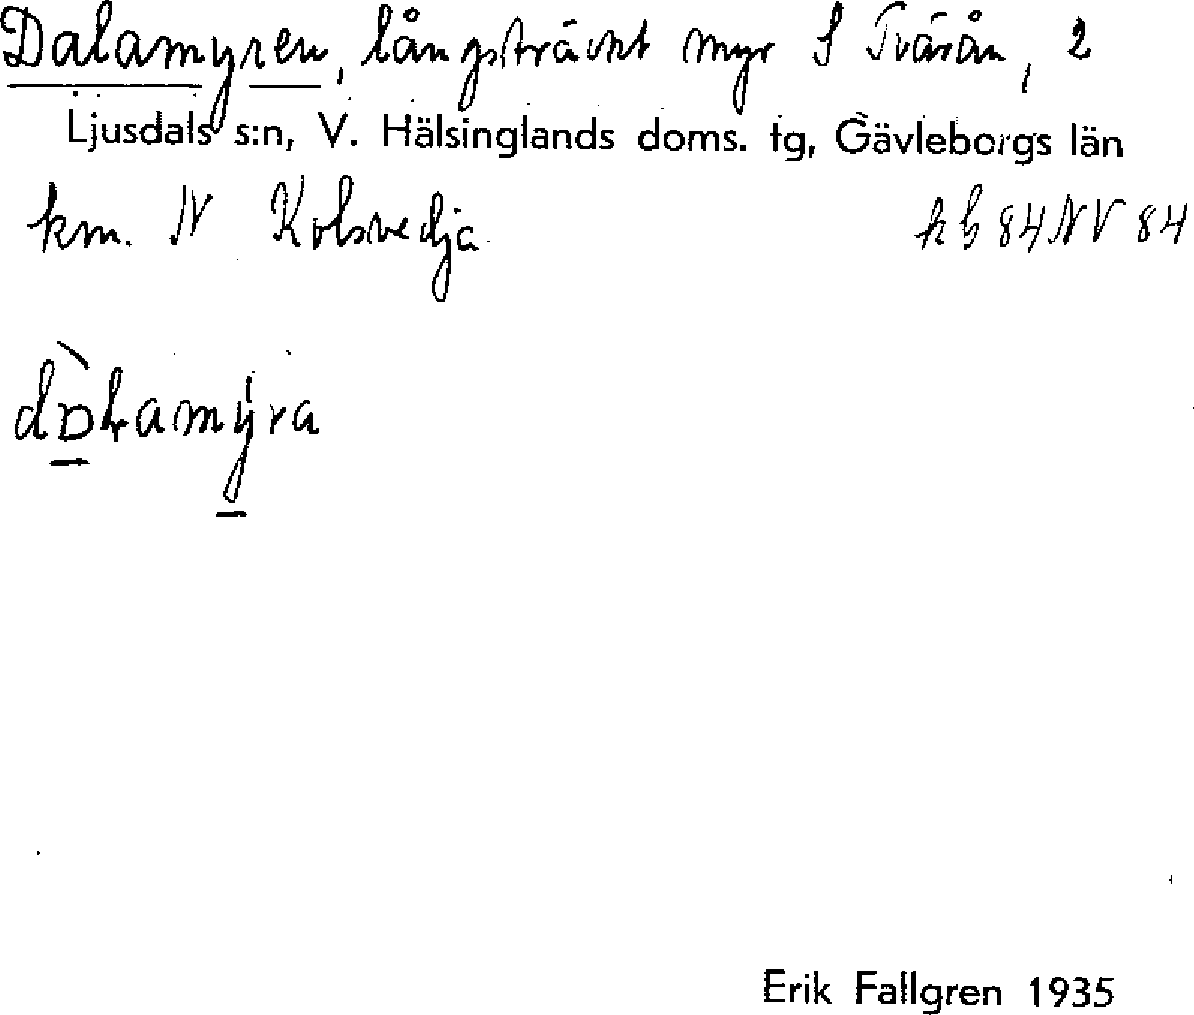 Dalamyren, långsträckt myr S Tvärån, 2
Ljusdals s:n, V. Hälsinglands doms. tg, Gävleborgs län
km. N Kolsvedja kb 84 NV 84
Erik Fallgren 1935